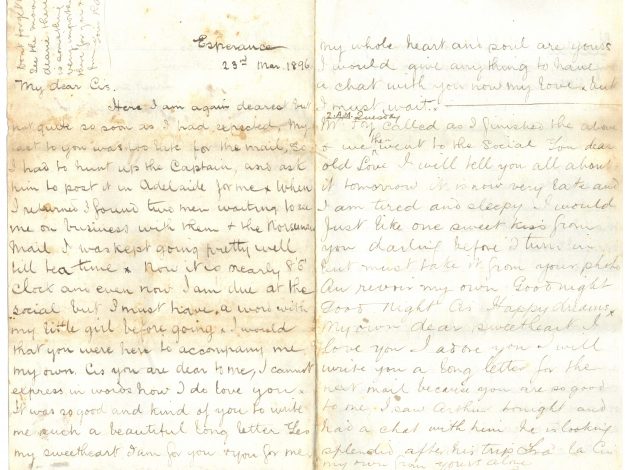 Esperance
23rd Mar. 1896
My dear Cis.
Here I am again dearest but
not quite so soon as I had expected, My
last to you was too late for the mail, so
I had to hunt up the Captain, and ask
him to post it in Adelaide for me. When
I returned I found two men waiting to see
me on business with them & the Norseman
Mail I was kept going pretty well
till tea time. Now it is nearly 8 o'
clock and even now I am due at the
social but I must have a word with
my little girl before going. I would
that you were here to accompany me
my own. Cis you are dear to me, I cannot
express in words how I do love you.
It was so good and kind of you to write
me such a beautiful long letter Yes
my sweetheart I am for you & you for me
my whole heart and soul are yours
I would give anything to have
a chat with you now my love. but
I must wait.
2 AM. Tuesday
Mr called as I finished the above
& we then went to the Social You dear
old Love I will tell you all about
it tomorrow it is now very late and
I am tired and sleepy I would
Just like one sweet kiss from
you darling before I turn in
but must take it from your photo
Au revoir my own Good night
Good Night Cis Happy dreams
My own dear sweetheart I
love you I adore you I will
write you a long letter for the
next mail because you are so good
to me. I saw Arthur tonight and
had a chat with him he is looking
splendid after his trip la Cis
my own from yours alone